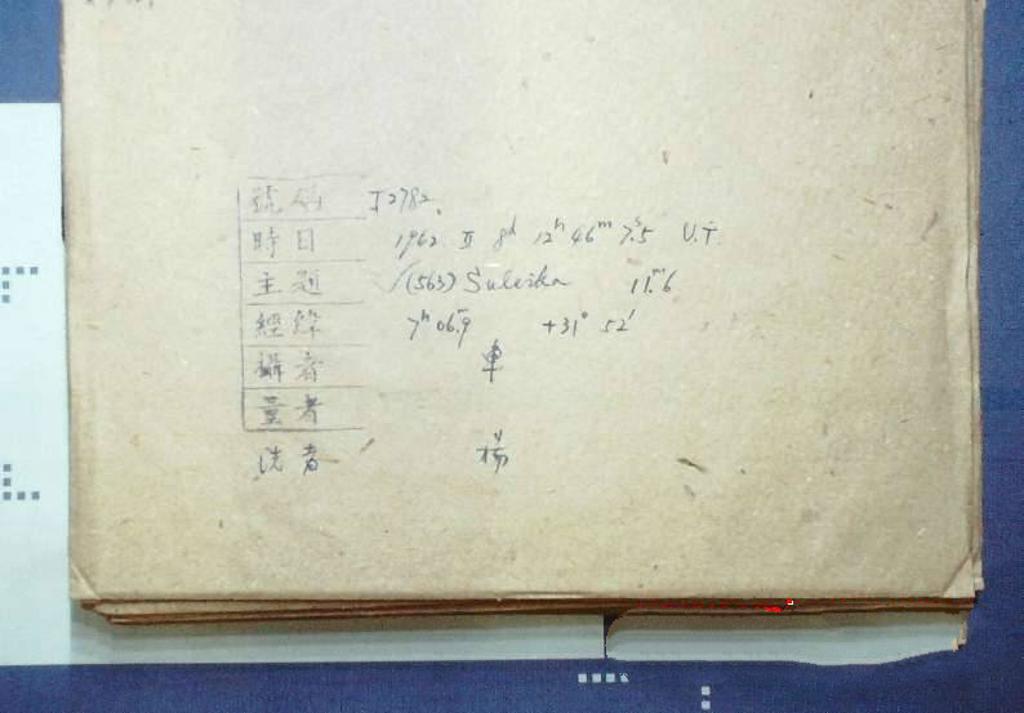 號碼 I2782.
時日 1962 II 8d 12h 46m 7s.5 U.T.
主題 (563) Suleika 11m.6
經緯 7h 06m.9 +31° 52'
攝者 車
量者
洗者 楊